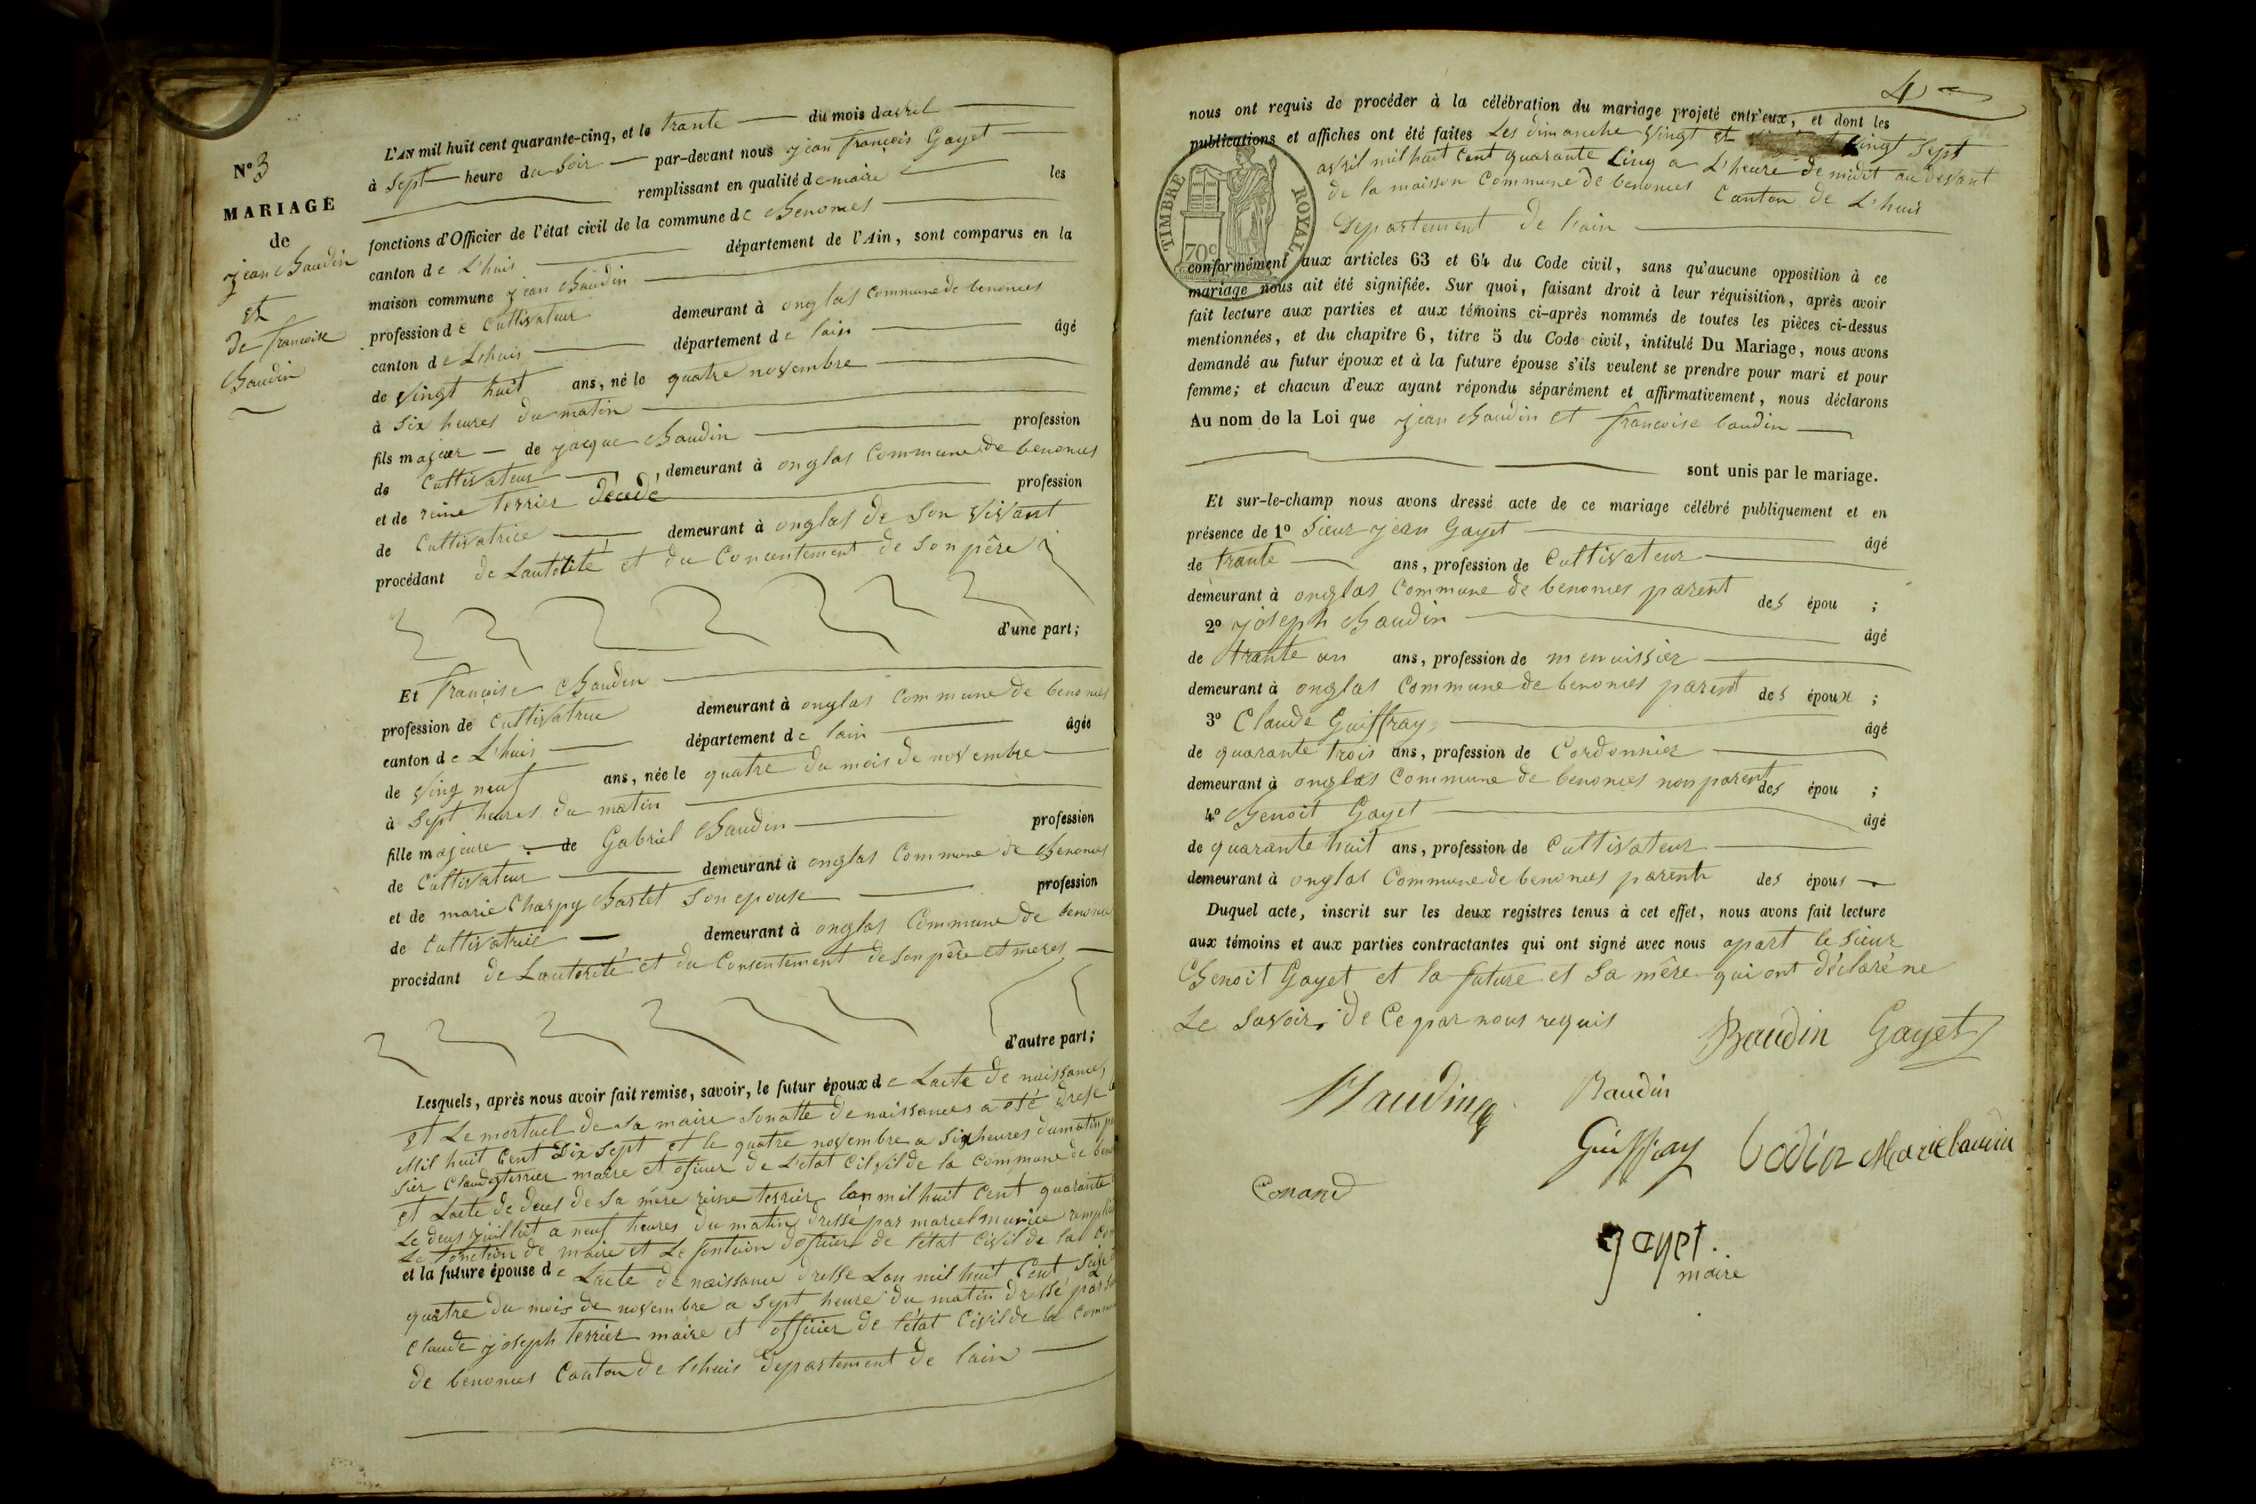 N° 3
MARIAGE
de
jean Baudin
et
De francoise
Baudin
L'AN mil huit cent quarante-cinq, et le trante du mois davril
à sept heure du soir par-devant nous jean françois Gayet
remplissant en qualité de maire les
fonctions d'Officier de l'état civil de la commune de Benonces
canton de L'huis département de l'Ain, sont comparus en la
maison commune jean Baudin
profession de Cultivateur demeurant à onglas commune de benonces
canton de Lhuis département de lain âgé
de vingt huit ans, né le quatre novembre
à six heures du matin
fils majeur de jacque Baudin profession
de Cultivateur, demeurant à onglas Commune de benonces
et de reine terrier décédé profession
de Cultivatrice demeurant à onglas de son vivant
procédant de Lautorité et du Concentement de son père
d'une part;
Et françoise Baudin
profession de cultivatrice demeurant à onglas commune de benonces
canton de L'huis département de lain âgée
de ving neuf ans, née le quatre du mois de novembre
à sept heures du matin
fille majeure de Gabriel Baudin profession
de Cultivateur demeurant à onglas Commune de Benonces
et de marie Charpy Bartet son epouse profession
de Cultivatrice demeurant à onglas Commune de benonces
procédant de Lautorité et du Consentement de son père et meres
d'autre part;
Lesquels, après nous avoir fait remise, savoir, le futur époux de Lacte de naissances,
et Le mortuel de sa maire sonatte de naissances a été dresé
Mil huit Cent Dix sept et le quatre novembre a six heures du matin
sier Claude terrier maire et oficier de L'etat Cilvil de la commune de
et Lacte de deces de sa mère reine terrier lan mil huit Cent quarante
Le deus juillet a neuf heures du matin dressé par marcel
Le fonction de maire et Le fontion doficier de l'état Civil de la
et la future épouse de Lacte de naissance dresse Lan mil huit Cent seise
quatre du mois de novembre a sept heure du matin dressé par
Claude joseph terrier maire et officier de l'état Civil de la
de benonces Canton de lhuis departement de lain
4
nous ont requis de procéder à la célébration du mariage projeté entr'eux, et dont les
publications et affiches ont été faites Les dimanche vingt et vingt sept
avril mil huit Cent quarante Cinq a L'heure de midit au devant
de la maison Commune de benonces Canton de L'huis
Departement de lain
TIMBRE ROYAL
70c
conformément aux articles 63 et 64 du Code civil, sans qu'aucune opposition à ce
mariage nous ait été signifiée. Sur quoi, faisant droit à leur réquisition, après avoir
fait lecture aux parties et aux témoins ci-après nommés de toutes les pièces ci-dessus
mentionnées, et du chapitre 6, titre 5 du Code civil, intitulé Du Mariage, nous avons
demandé au futur époux et à la future épouse s'ils veulent se prendre pour mari et pour
femme; et chacun d'eux ayant répondu séparément et affirmativement, nous déclarons
Au nom de la Loi que jean Baudin et francoise baudin
sont unis par le mariage.
Et sur-le-champ nous avons dressé acte de ce mariage célébré publiquement et en
présence de 1° Sieur jean Gayet âgé
de trante ans, profession de Cultivateur
demeurant à onglas Commune de benonces parent des épou ;
2° joseph Baudin âgé
de trante un ans, profession de menuissier
demeurant à onglas Commune de benonces parent des époux ;
3° Claude Guiffray âgé
de quarante trois ans, profession de Cordonnier
demeurant à onglas Commune de benonces non parent des épou ;
4° Benoit Gayet âgé
de quarante huit ans, profession de Cultivateur
demeurant à onglas Commune de benonces parent des épous
Duquel acte, inscrit sur les deux registres tenus à cet effet, nous avons fait lecture
aux témoins et aux parties contractantes qui ont signé avec nous apart le Sieur
Benoit Gayet et la future et Sa mère qui ont déclaré ne
Le Savoir, de Ce par nous requis
Baudin Gayet
Baudin Baudin
Guiffray bodin Marie baudin
Conand
gayet.
maire